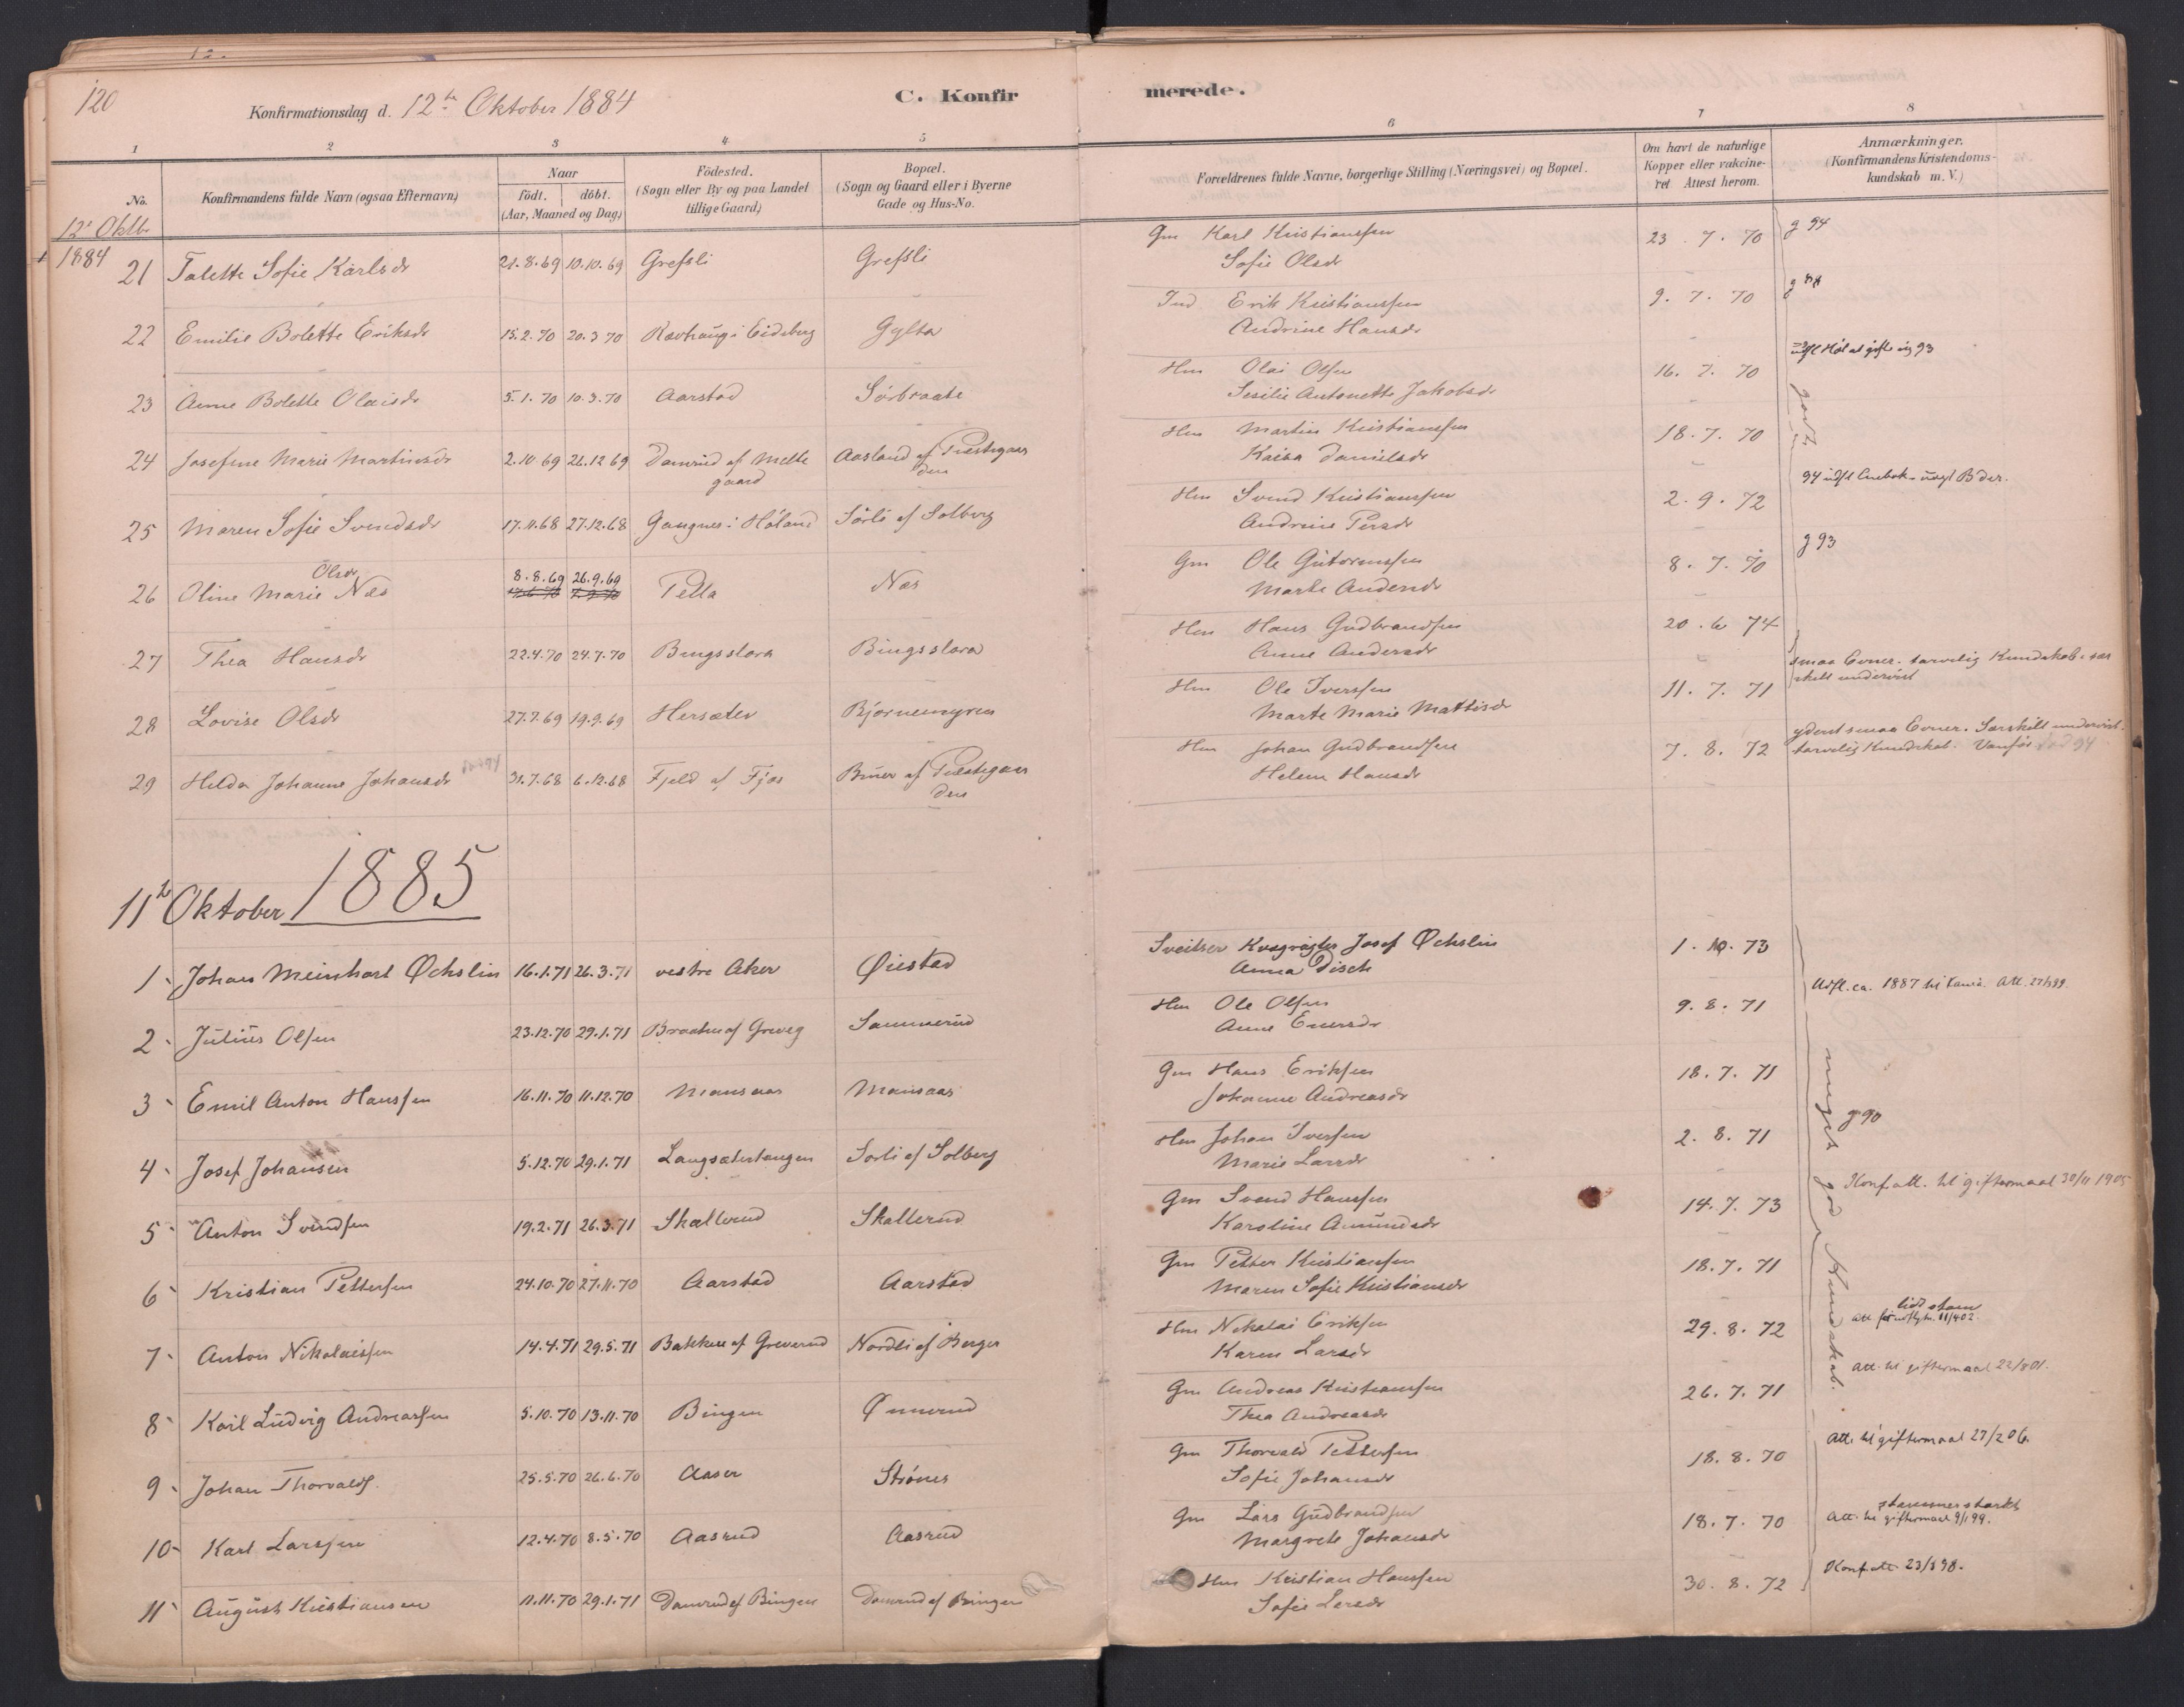 120
Konfirmationsdag d. 12te Oktober 1884
C. Konfirmerede.
1 2 3 4 5 6 7 8
No.
Konfirmandens fulde Navn (ogsaa Efternavn)
Naar
födt. döbt.
(Aar, Maaned og Dag)
Födested.
(Sogn eller By og paa Landet
tillige Gaard)
Bopæl.
(Sogn og Gaard eller i Byerne
Gade og Hus-No.
Forældrenes fulde Navne, borgerlige Stilling (Næringsvei) og Bopæl.
Om havt de naturlige
Kopper eller vakcine-
ret Attest herom.
Anmærkninger.
(Konfirmandens Kristendoms-
kundskab m. V.)
12' Oktb.
1884
21 Talette Sofie Karlsdr 21.8.69 10.10.69 Grefsli Grefsli Gm Karl Kristianssen 23.7.70 g 94
Sofie Olsdr
22 Emilie Bolette Eriksdr 15.2.70 20.3.70 Ravhaug i Eidsberg Gylta Ind Erik Kristianssen 9.7.70
Andrine Hansdr
23 Anne Bolette Olaisdr 5.1.70 10.3.70 Aarstad Sörbraate Hm Olai Olsen 16.7.70
Sesilie Antonette Jakobsdr
godt
24 Josefine Marie Martinsdr 2.10.69 26.12.69 Damrud af Melle Aasland af Prestegaar Hm Martin Kristianssen 18.7.70
gaard den Kaisa Danielsdr
25 Maren Sofie Svendsdr 17.11.68 27.12.68 Gangnes i Höland Sörli af Solberg Hm Svend Kristianssen 2.9.72
Andrine Persdr
Olsdr
26 Oline Marie Næs 8.8.69 26.9.69 Tella Næs Gm Ole Gutormssen 8.7.70 g 93
Marte Andersdr
27 Thea Hansdr 22.4.70 24.7.70 Bingsslora Bingsslora Hm Hans Gudbrandsen 20.6.74
Anne Andersdr
28 Lovise Olsdr 27.7.69 19.9.69 Hersæter Bjørnemyren Hm Ole Iverssen 11.7.71 smaa Evner. tarvelig Kundskab. sær
Marte Marie Mattisdr skilt undervist
29 Helda Johanne Johansdr 31.7.68 6.12.68 Fjeld af Fjøs Bruer af Prestegaar Hm Johan Gudbrandsen 7.8.72 ydent smaa Evner. Særskilt undervist.
den Helene Hansdr tarvelig Kundskab. Vanför
11te Oktober 1885
1 Johan Meinhart Øchslin 16.1.71 26.3.71 vestre Aker Øiestad Sveitser Kvægrøgter Josef Øchslin 1.10.73
Anna Disch
2 Julius Olsen 23.12.70 29.1.71 Braaten af Greveg Sammerud Hm Ole Olsen 9.8.71
Anne Enersdr
3 Emil Anton Hanssen 16.11.70 11.12.70 Monsaas Monsaas Gm Hans Eriksen 18.7.71
Johanne Andreasdr
4 Josef Johansen 5.12.70 29.1.71 Langsætertangen Sorli af Solberg Hm Johan Iversen 2.8.71 g 90
Marie Larsdr
5 Anton Svendsen 19.2.71 26.3.71 Skallerud Skallerud Gm Svend Hanssen 14.7.73 Konf.att. til giftermaal 30/11 1905
Karoline Amundsdr
6 Kristian Pettersen 24.10.70 27.11.70 Aarstad Aarstad Gm Petter Kristiansen 18.7.71
Maren Sofie Kristiansdr
meget god Kundskab.
7 Anton Nikolaissen 14.4.71 29.5.71 Bakken af Greverud Nordli af Berger Hm Nikolai Eriksen 29.8.72
Karen Larsdr
8 Karl Ludvig Andreassen 5.10.70 13.11.70 Bingen Ønnerud Gm Andreas Kristiansen 26.7.71 Att. til giftermaal 22/8 01.
Thea Andreasdr
9 Johan Thorvalds. 25.5.70 26.6.70 Aaser Strönes Gm Thorvald Pettersen 18.8.70 Att. til giftermaal 27/2 06.
Sofie Johansdr
10 Karl Larssen 12.4.70 8.5.70 Aasrud Aasrud Gm Lars Gudbrandsen 18.7.70 stammer stærkt
Margrete Johansdr Att. til giftermaal 9/1 99.
11 August Kristiansen 11.11.70 29.1.71 Damrud af Bingen Damrud af Bingen Hm Kristian Hanssen 30.8.72 Konf.att. 23/8 98.
Sofie Larsdr